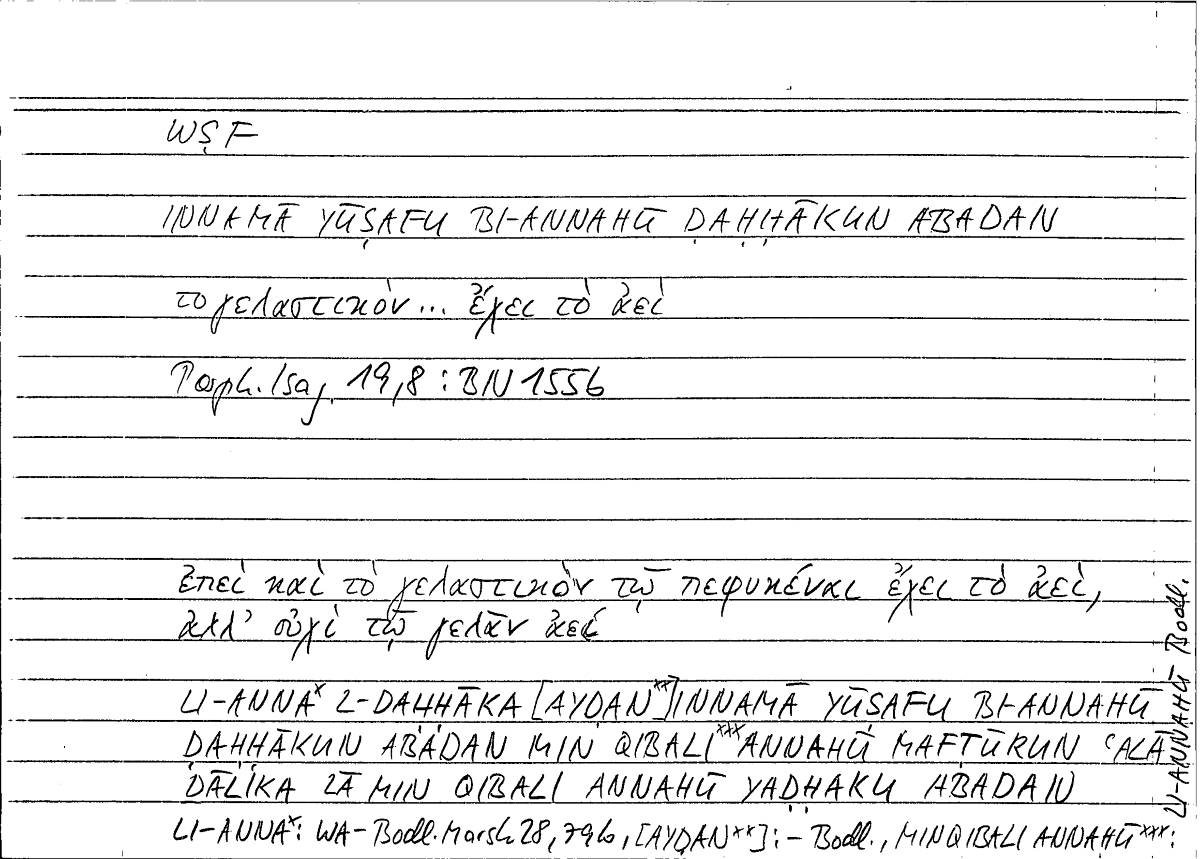 WṢF
INNAMĀ YŪṢAFU BI-ANNAHŪ ḌAḤḤĀKUN ABADAN
το γελαστικὸν... ἔχει τὸ ἀεὶ
Porph. Isag. 19,8 : BN 155b
ἐπεὶ καὶ τὸ γελαστικὸν τῷ πεφυκέναι ἔχει τὸ ἀεὶ,
ἀλλ' οὐχὶ τῷ γελᾶν ἀεί
LI-ANNA* L-ḌAḤḤĀKA [AYḌAN**] INNAMĀ YŪṢAFU BI-ANNAHŪ
ḌAḤḤĀKUN ABADAN MIN QIBALI***ANNAHŪ MAFṬŪRUN ʿALĀ
ḎĀLIKA LĀ MIN QIBALI ANNAHŪ YAḌḤAKU ABADAN
LI-ANNA*: WA- Bodl. Marsh 28, 79b, [AYḌAN**]: - Bodl., MIN QIBALI ANNAHŪ***:
LI-ANNAHŪ Bodl.